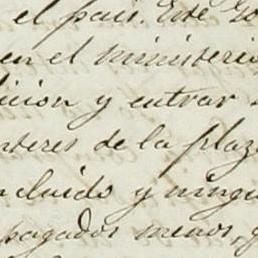 el pais. Este Go
en el ministerio
dicion y entrar
nteres de la plaz
ncluido y ningu
pagados menos,